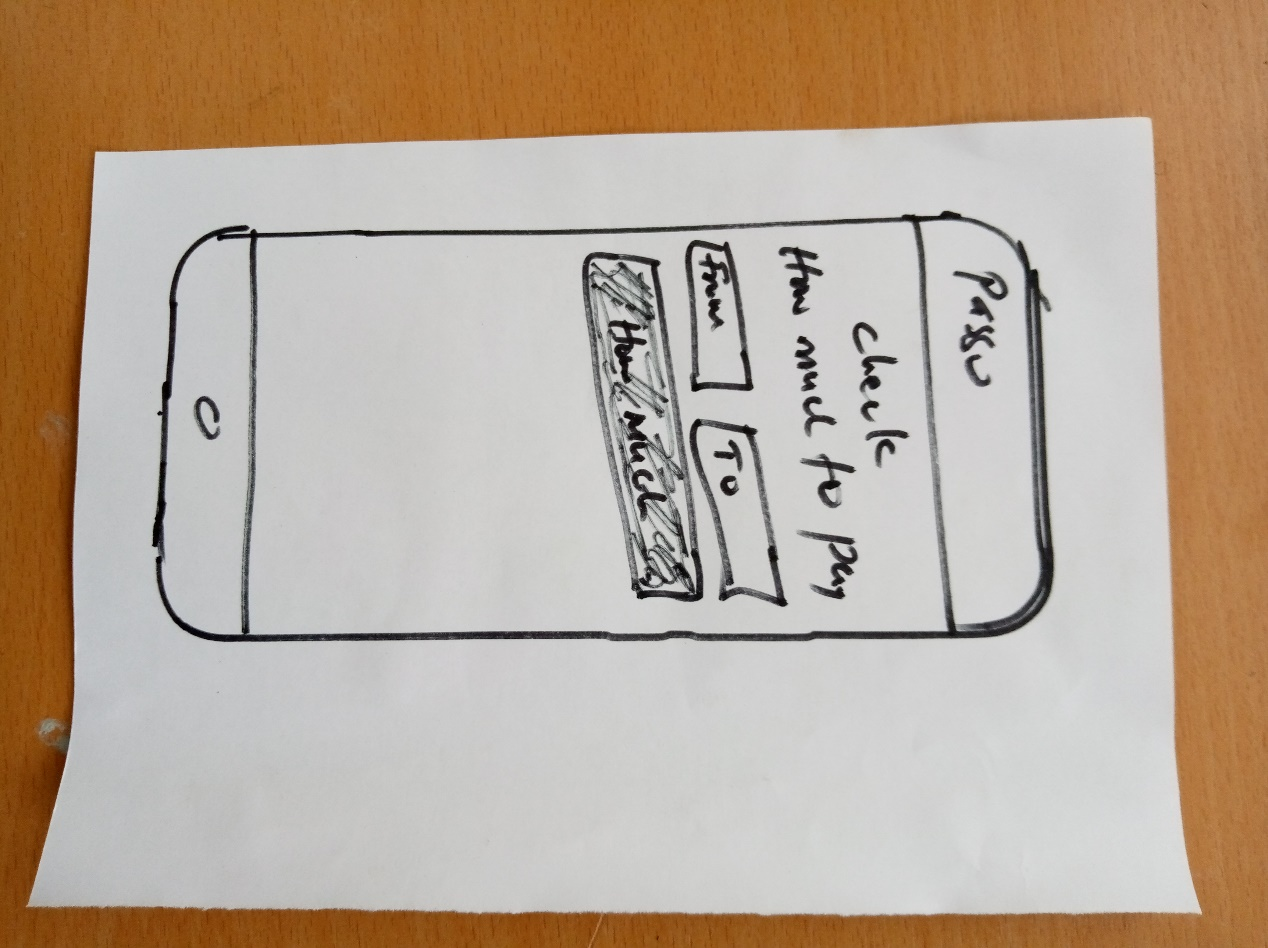 Passo
check
How much to pay
From
To
How much